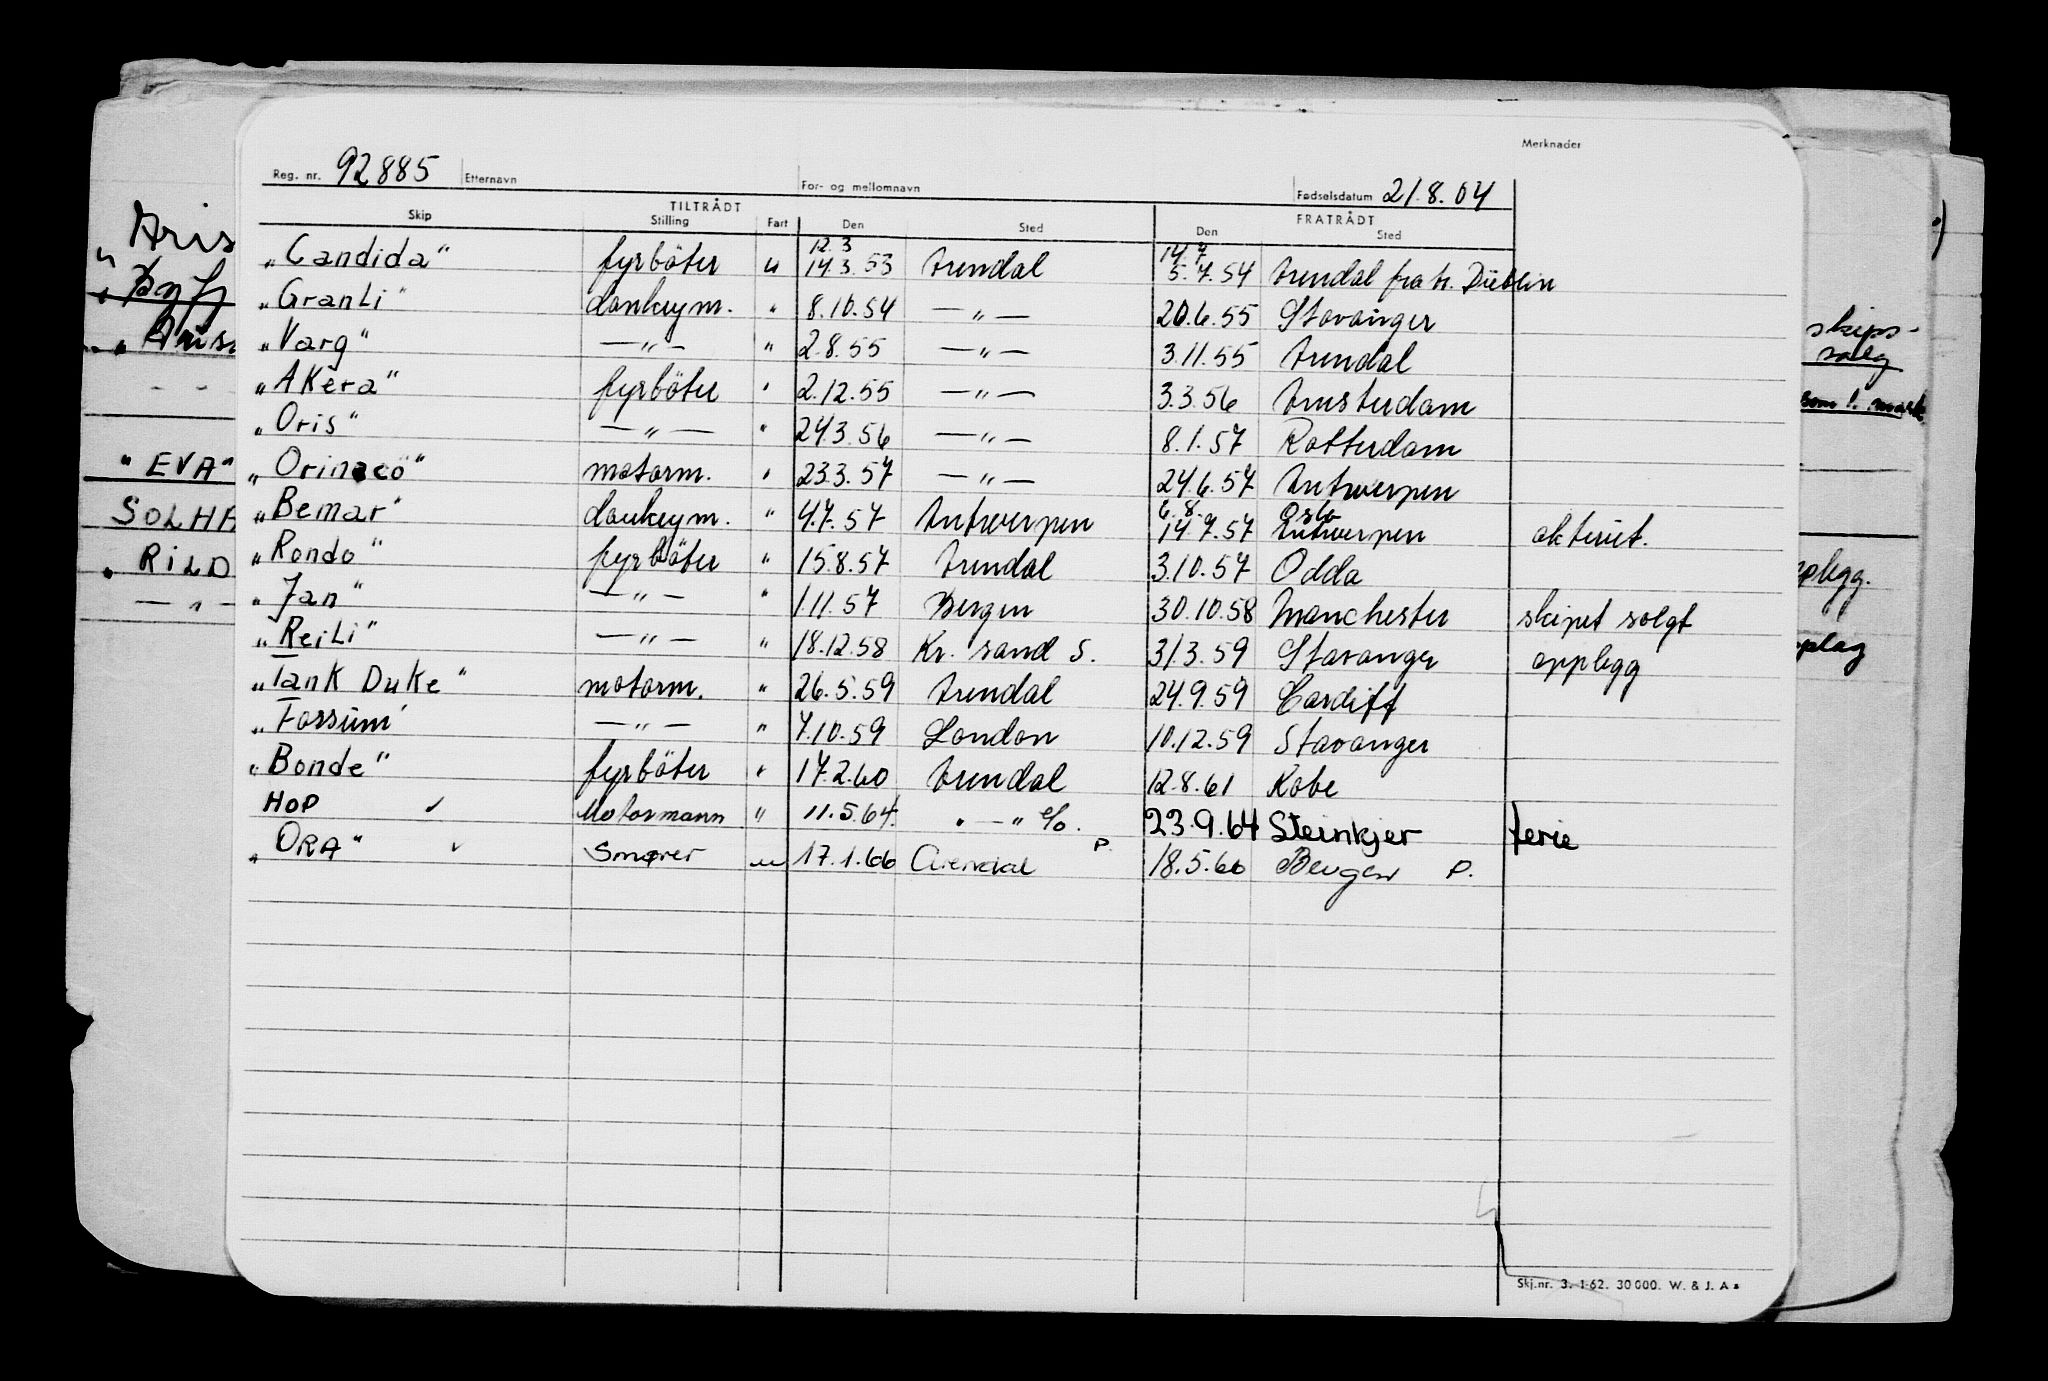 Merknader
Reg. nr. 92885 Etternavn For- og mellomnavn Fødselsdatum 21.8.04
TILTRÅDT FRATRÅDT
Skip Stilling Fart Den Sted Den Sted
12.3 14.7
„Candida" fyrböter u 14.3.53 Arendal 5.7.54 Arendal fratr. Düblin
„GranLi" donkeym. " 8.10.54 — „ — 20.6.55 Stavanger
„Varg" — „ — " 2.8.55 — „ — 3.11.55 Arendal
„AKera" fyrböter " 2.12.55 — „ — 3.3.56 Amsterdam
„Oris" — „ — " 24.3.56 — „ — 8.1.57 Rotterdam
„Orinoco" motorm. " 23.3.57 — „ — 24.6.57 Antwerpen
6.8. Oslo
„Bemar" donkeym. " 4.7.57 Antwerpen 14.7.57 Antwerpen akterut.
„Rondo" fyrböter " 15.8.57 Arendal 3.10.57 Odda
„Jan" — „ — " 1.11.57 Bergen 30.10.58 Manchester skipet solgt
„ReiLi" — „ — " 18.12.58 Kr. sand S. 31.3.59 Stavanger opplegg
„Tank Duke" motorm. " 26.5.59 Arendal 24.9.59 Cardiff
„Fossum" — „ — " 7.10.59 London 10.12.59 Stavanger
„Bonde" fyrböter " 17.2.60 Arendal 12.8.61 Kobe
HOP ✓ Motormann " 11.5.64. " — " %. 23.9.64 Steinkjer ferie
„ORA" ✓ Smører u 17.1.66 Arendal P. 18.5.66 Bergen P.
Skj.nr. 3. 1-62. 30 000. W. & J. A s
Aris
„EVA"
SOLHA
„RILD
— „ —
skips-
salg
som 1. mask
pplegg.
pplag